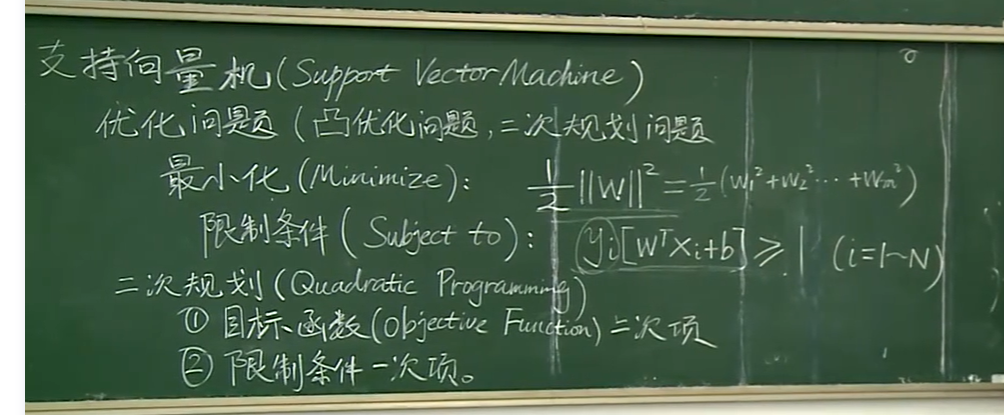 支持向量机(Support Vector Machine)
优化问题(凸优化问题,二次规划问题
最小化(Minimize): ½||W||² = ½(W₁²+W₂²···+Wₘ²)
限制条件(Subject to): yᵢ[WᵀXᵢ+b] ≥ 1 (i=1~N)
二次规划(Quadratic Programming)
① 目标函数(Objective Function)二次项
② 限制条件一次项。